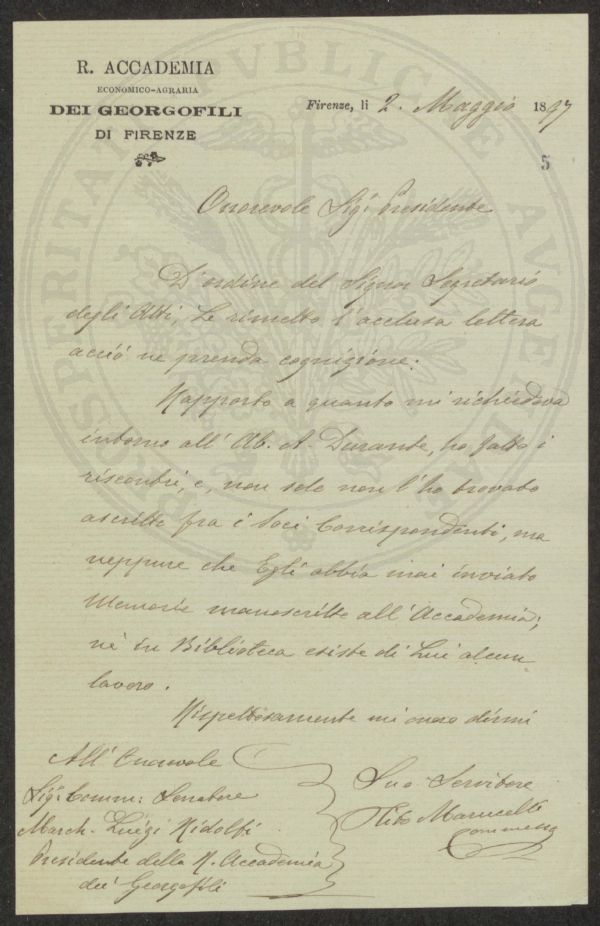 R. ACCADEMIA
ECONOMICO-AGRARIA
DEI GEORGOFILI
DI FIRENZE
Firenze, li 2. Maggio 1897
5
PROSPERITATI PUBLICAE AUGENDAE
Onorevole Sigr Presidente
D'ordine del Signor Segretario
degli Atti, Le rimetto l'acclusa lettera
acciò ne prenda cognizione.
Rapporto a quanto mi richiedeva
intorno all'Ab. A. Durante, ho fatto i
riscontri, e, non solo non l'ho trovato
ascritto fra i Soci Corrispondenti, ma
neppure che Egli abbia mai inviato
Memorie manoscritte all'Accademia;
nè in Biblioteca esiste di Lui alcun
lavoro.
Rispettosamente mi onoro dirmi
Suo Servitore
Tito Marucelli
Commesso
All'Onorevole
Sigr Comm: Senatore
March. Luigi Ridolfi
Presidente della R. Accademia
dei Georgofili